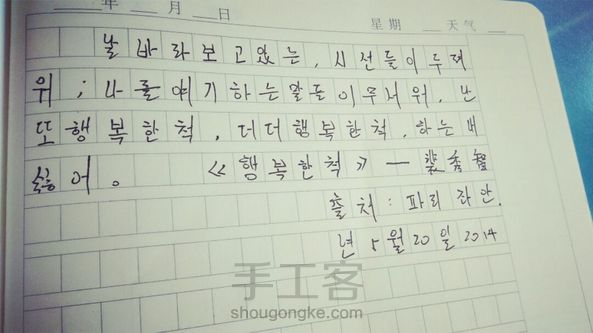 年 月 日 星期 天气
날 바라보고있는, 시선들이 두려
워; 나를 얘기하는 말들이 무서워, 난
또 행복한척, 더더행복한척, 하는 내
싫어。 《행복한척》 — 裴秀智
출처: 파리
년 5월 20일 2014
手工客
shougongke.com